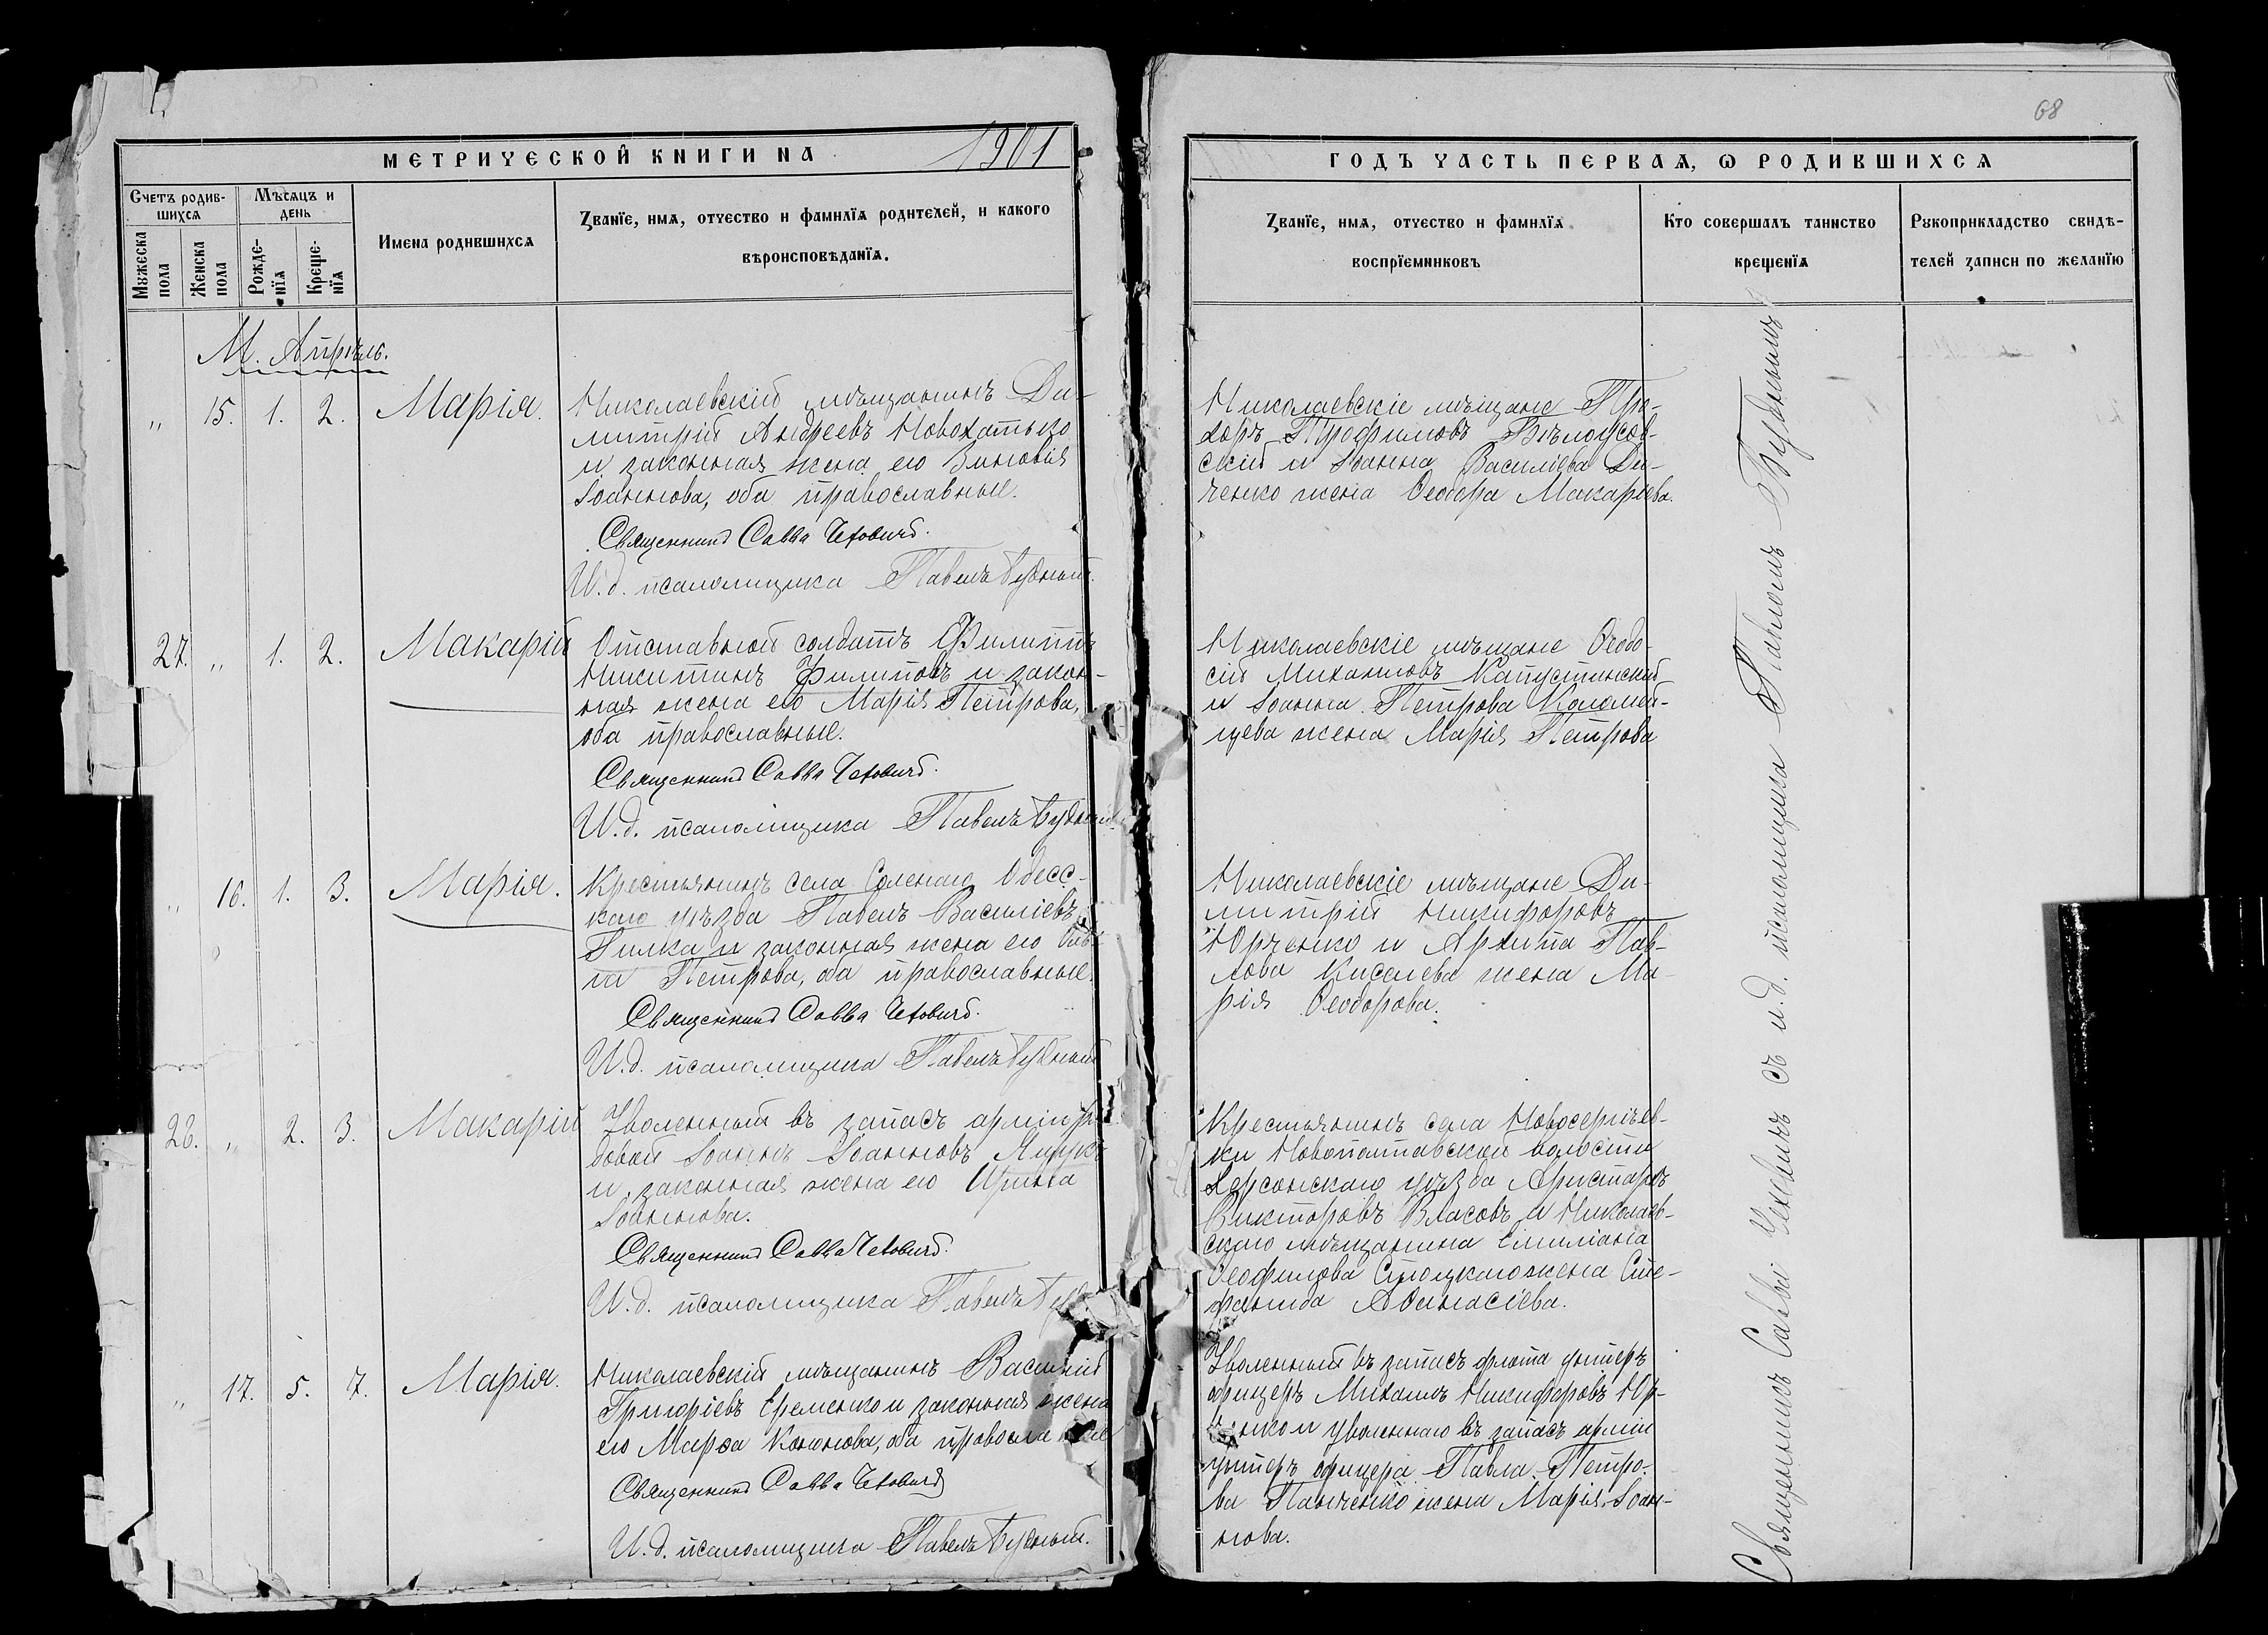 68
МЕТРИЧЕСКОЙ КНИГИ НА 1901
ГОДЪ ЧАСТЬ ПЕРВАЯ, Ѡ РОДИВШИХСЯ
Счетъ родив-
шихся
Мѣсяцъ и
день
Мужеска
пола
Женска
пола
Рожде-
нїя
Креще-
нїя
Имена родившихся
Званїе, имя, отчество и фамилїя родителей, и какого
вѣроисповѣданїя.
Званїе, имя, отчество и фамилїя
воспрїемниковъ
Кто совершалъ таинство
крещенїя
Рукоприкладство свидѣ-
телей записи по желанїю
М. Апрѣль.
„ 15. 1. 2. Марія.
Николаевскій мѣщанинъ Ди-
митрій Андреевъ Новохатько
и законная жена его Зиновія
Іоаннова, оба православные.
Священникъ Савва Чехович.
И. д. псаломщика Павелъ Будный.
Николаевскіе мѣщане Про-
хоръ Трофимовъ Бѣлоусов-
скій и Іоанна Василіева Ди-
ченко жена Ѳеодора Макаріева.
27. „ 1. 2. Макарій
Отставной солдатъ Филиппъ
Никитинъ Филиповъ и закон-
ная жена его Марія Петрова,
оба православные.
Священникъ Савва Чехович.
И. д. псаломщика Павелъ Будный.
Николаевскіе мѣщане Ѳеодо-
сій Михаиловъ Капустинскій
и Іоанна Петрова Коломій-
цева жена Марія Петрова
„ 16. 1. 3. Марія.
Крестьянинъ села Соленаго Одесс-
каго уѣзда Павелъ Василіевъ
Гилка и законная жена его
Петрова, оба православные.
Священникъ Савва Чехович.
И. д. псаломщика Павелъ Будный
Николаевскіе мѣщане Ди-
митрій Никифоровъ
Юрченко и Архипа Пав-
лова Киселева жена Ма-
рія Ѳеодорова.
28. „ 2. 3. Макарій
Уволенный въ запасъ арміи ря-
довой Іоаннъ Іоанновъ
и законная жена его Ирина
Іоаннова.
Священникъ Савва Чехович.
И. д. псаломщика Павелъ
Крестьянинъ села Новосергѣев-
ки Новополтавской волости
Херсонскаго уѣзда Аристархъ
Викторовъ Власовъ и Николаев-
скаго мѣщанина Емиліана
Ѳеофилова Стоцкаго жена Сте-
фанида Аѳанасіева.
„ 17. 5. 7. Марія.
Николаевскій мѣщанинъ Василій
Григоріевъ Еременко и законная жена
его Марѳа Кононова, оба
Священникъ Савва Чехович
И. д. псаломщика Павелъ Будный.
Уволенный въ запасъ флота унтеръ
офицеръ Михаилъ Никифоровъ Юр-
ченко и уволеннаго въ запасъ арміи
унтеръ офицера Павла Петро-
ва Панченко жена Марія Іоан-
нова.
Священникъ Савва Чехович съ и. д. псаломщика Павломъ Буднымъ